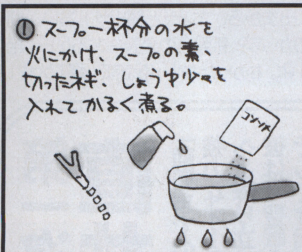 ① スープ一杯分の水を
火にかけ、スープの素、
切ったネギ、しょうゆ少々を
入れてかるく煮る。
コンソメ